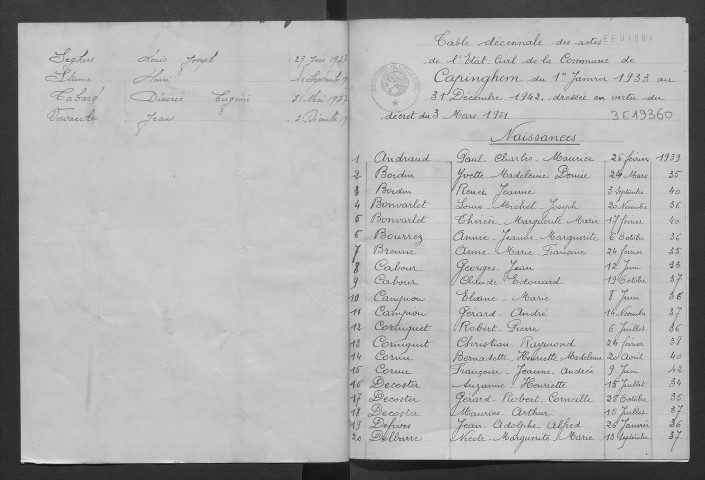 Seghers Louis Joseph 29 Juin 1937
Etienne Henri
Tabary Désiré Eugène 31 Mai 1937
Vervaecke Jean
Table décennale des actes
de l'Etat Civil de la Commune de
Capinghem du 1er Janvier 1933 au
31 Décembre 1942, dressée en vertu du
décret du 3 Mars 1951 3E19360
Naissances
1 Andraud Paul-Charles-Maurice 26 février 1939
2 Bordin Yvette Madeleine Denise 24 Mars 35
3 Bordin Renée Jeanne 3 Septembre 40
4 Bonvarlet Louis-Michel-Joseph 20 Novembre 36
5 Bonvarlet Thérèse-Marguerite Marie 17 février 40
6 Bourrez Annie-Jeanne-Marguerite 6 Octobre 36
7 Bronne Anne-Marie-Francine 24 février 35
8 Cabour Georges Jean 12 Juin 33
9 Cabour Claude Edouard 19 Octobre 37
10 Campion Eliane-Marie 8 Juin 36
11 Campion Gérard-André 14 Novembre 37
12 Cornquet Robert-Pierre 6 Juillet 36
13 Cornquet Christian Raymond 24 février 38
14 Cornu Bernadette-Henriette Madeleine 20 Août 40
15 Cornu Françoise-Jeanne-Andrée 9 Juin 42
16 Decoster Suzanne-Henriette 15 Juillet 34
17 Decoster Gérard-Robert-Corneille 28 Octobre 35
18 Decoster Maurice Arthur 15 Juillet 37
19 Defives Jean Adolphe Alfred 26 Janvier 36
20 Delbarre Nicole-Marguerite Marie 13 Septembre 37